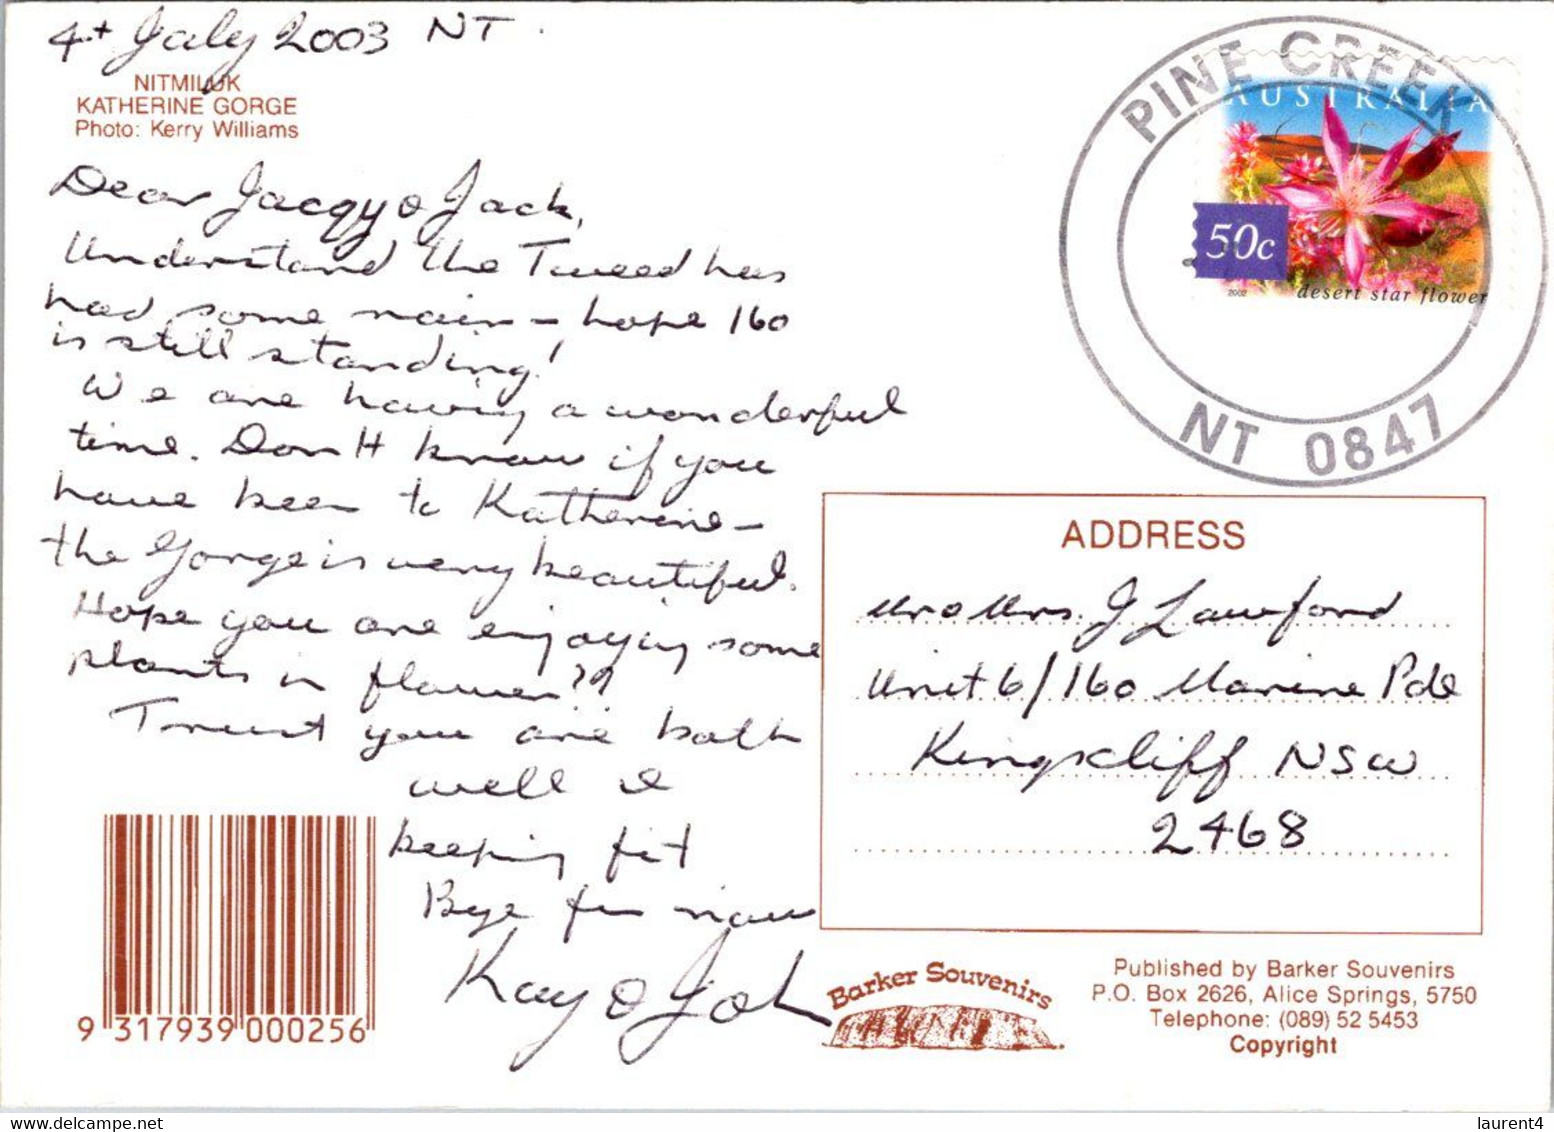 4th July 2003 NT.
NITMILUK
KATHERINE GORGE
Photo: Kerry Williams
Dear Jacqy & Jack,
Understand the Tweed has
had some rain – hope 160
is still standing!
We are having a wonderful
time. Don't know if you
have been to Katherine –
the Gorge is very beautiful.
Hope you are enjoying some
plants in flower??
Trust you are both
well &
keeping fit
Bye for now
Kay & Joh
PINE CREEK
NT 0847
AUSTRALIA
50c
2002
desert star flower
ADDRESS
Mr & Mrs. J Lawford
Unit 6/160 Marine Pde
Kingscliff NSW
2468
9 317939 000256
Barker Souvenirs
Published by Barker Souvenirs
P.O. Box 2626, Alice Springs, 5750
Telephone: (089) 52 5453
Copyright
www.delcampe.net
laurent4